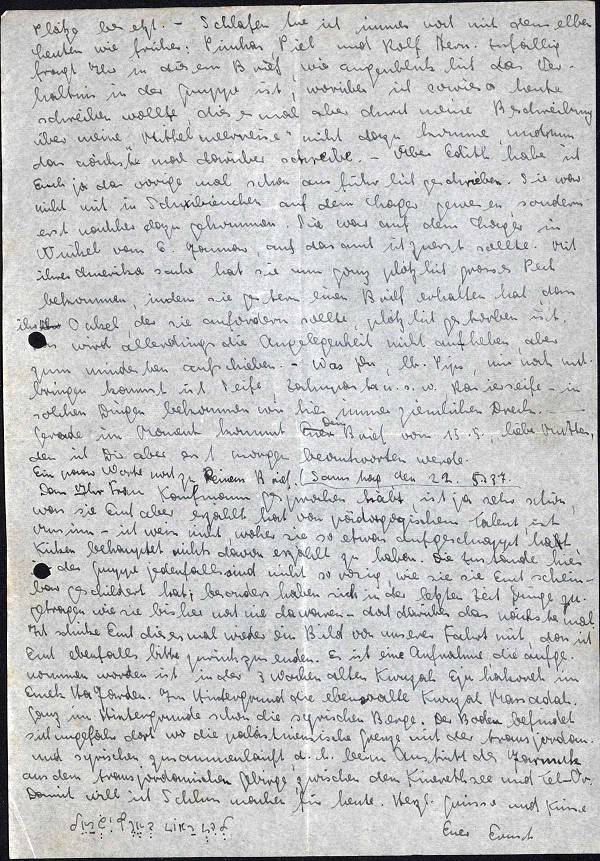 Plätze besetzt. - Schlafen tue ich immer noch mit denselben
Leuten wie früher: Pinchas, Piel und Rolf Stern. Zufällig
fragt Ihr in diesem Brief, wie augenblicklich das Ver-
hältnis in der Gruppe ist, worüber ich sowieso heute
schreiben wollte, dies es mal aber durch meine Beschreibung
über meine "Mittelmeerreise" nicht dazu komme, und nun
das nächste mal darüber schreibe. - Über Edith habe ich
Euch ja das vorige mal schon ausführlich geschrieben. Sie war
nicht mit in auf dem Chager gewesen sondern
erst nachher dazu gekommen. Sie war auf dem Chager in
Winkel vom 6. Januar, auf das auch ich zuerst sollte. Mit
ihrer Amerika sache hat sie nun ganz plötzlich grosses Pech
bekommen, indem sie gestern einen Brief erhalten hat, dass
ihr Onkel der sie anfordern sollte, plötzlich gestorben ist.
Es wird allerdings die Angelegenheit nicht aufheben, aber
zum mindesten aufschieben. - Was Du, lb. Pips, mir noch mit-
bringen kannst ist Seife, Zahnpasta u.s.w. Rasierseife - in
solchen Dingen bekommen wir hier immer ziemlichen Dreck. -
Gerade im Moment kommt Dein Brief vom 15.5., liebe Mutter,
den ich Dir aber erst morgen beantworten werde.
Ein paar Worte noch zu Deinem Brief. Samstag den 22. 5. 37.
Dass Ihr Frau Kaufmann gesprochen habt, ist ja sehr schön,
was sie Euch aber erzählt hat von pädagogischem Talent ist
Unsinn - ich weiss nicht, woher sie so etwas aufgeschnappt hat.
behauptet nichts davon erzählt zu haben. Die Zustände hier
in der Gruppe jedenfalls sind nicht so rosig, wie sie sie Euch schein-
bar geschildert hat; besonders haben sich in der letzten Zeit Dinge zu-
getragen wie sie bisher noch nie da waren - doch darüber das nächste mal
Ich schicke Euch dies es mal wieder ein Bild von unserer Fahrt mit, das ich
Euch ebenfalls bitte zurückzusenden. Es ist eine Aufnahme die aufge-
nommen worden ist in der 3 Wochen alten Kwuzah Ejn hakoreh im
Emek Ha Jarden. Im Hintergrund die ebensoalte Kwuzah Massadah.
Ganz im Hintergrunde schon die syrischen Berge. Der Boden befindet
sich ungefähr dort wo die palästinensische Grenze mit der transjordan.
und syrischen zusammenläuft d.h. beim Austritt des Jarmuk
aus dem transjordanischen Gebirge zwischen dem Kinerethsee und Tel-Or.
Damit will ich Schluss machen für heute. Herzl. Grüsse und Küsse
Euer Ernst